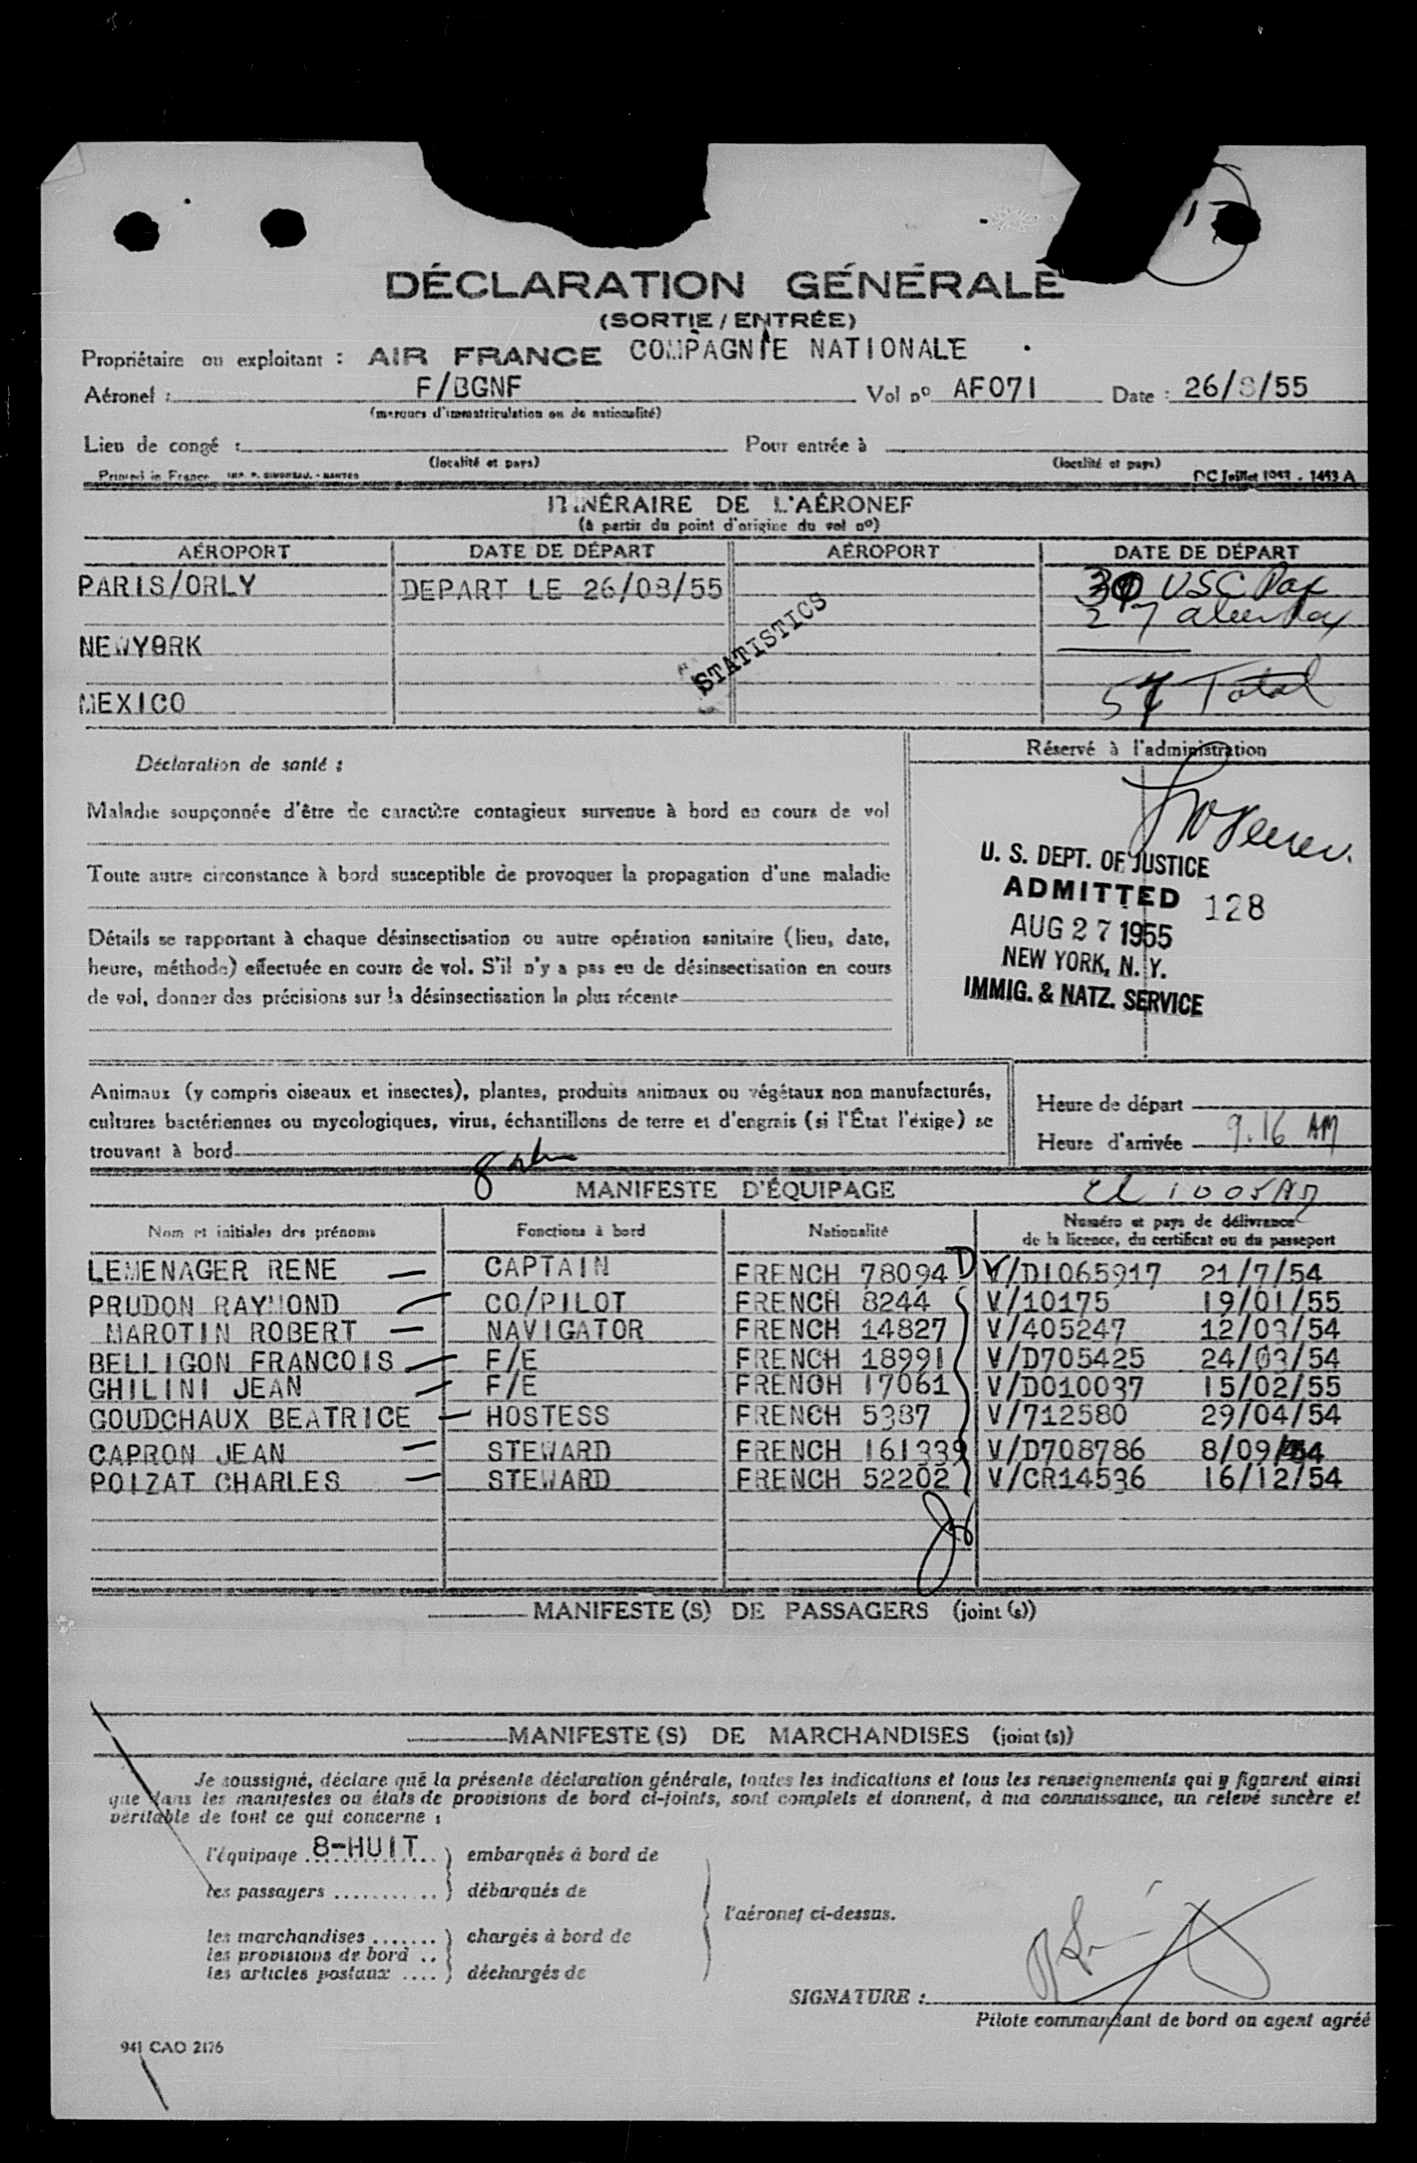 DÉCLARATION GÉNÉRALE
(SORTIE / ENTRÉE)
Propriétaire ou exploitant : AIR FRANCE COMPAGNIE NATIONALE
Aéronef : F/BGNF Vol nº AF071 Date : 26/8/55
(marques d'immatriculation ou de nationalité)
Lieu de congé : Pour entrée à
(localité et pays) (localité et pays)
Printed in France DC Juillet 1493 A
ITINÉRAIRE DE L'AÉRONEF
(à partir du point d'origine du vol nº)
AÉROPORT DATE DE DÉPART AÉROPORT DATE DE DÉPART
PARIS/ORLY DEPART LE 26/08/55 30 USC Pax
27 alien Pax
NEWYORK
STATISTICS
MEXICO 57 Total
Réservé à l'administration
Déclaration de santé :
Maladie soupçonnée d'être de caractère contagieux survenue à bord en cours de vol
Toute autre circonstance à bord susceptible de provoquer la propagation d'une maladie
Détails se rapportant à chaque désinsectisation ou autre opération sanitaire (lieu, date,
heure, méthode) effectuée en cours de vol. S'il n'y a pas eu de désinsectisation en cours
de vol, donner des précisions sur la désinsectisation la plus récente
U. S. DEPT. OF JUSTICE
ADMITTED 128
AUG 27 1955
NEW YORK, N. Y.
IMMIG. & NATZ. SERVICE
Animaux (y compris oiseaux et insectes), plantes, produits animaux ou végétaux non manufacturés,
cultures bactériennes ou mycologiques, virus, échantillons de terre et d'engrais (si l'État l'exige) se
trouvant à bord
Heure de départ
Heure d'arrivée 9.16 AM
MANIFESTE D'ÉQUIPAGE
Nom et initiales des prénoms Fonctions à bord Nationalité Numéro et pays de délivrance
de la licence, du certificat ou du passeport
LEMENAGER RENE — CAPTAIN FRENCH 78094 D V/D1065917 21/7/54
PRUDON RAYMOND — CO/PILOT FRENCH 8244 V/10175 19/01/55
MAROTIN ROBERT — NAVIGATOR FRENCH 14827 V/405247 12/03/54
BELLIGON FRANCOIS — F/E FRENCH 18991 V/D705425 24/03/54
GHILINI JEAN — F/E FRENCH 17061 V/D010037 15/02/55
GOUDCHAUX BEATRICE — HOSTESS FRENCH 5387 V/712580 29/04/54
CAPRON JEAN — STEWARD FRENCH 161339 V/D708786 8/09/54
POIZAT CHARLES — STEWARD FRENCH 52202 V/CR14536 16/12/54
MANIFESTE(S) DE PASSAGERS (joint(s))
MANIFESTE(S) DE MARCHANDISES (joint(s))
Je soussigné, déclare que la présente déclaration générale, toutes les indications et tous les renseignements qui y figurent ainsi
que dans les manifestes ou états de provisions de bord ci-joints, sont complets et donnent, à ma connaissance, un relevé sincère et
véritable de tout ce qui concerne :
l'équipage 8-HUIT ) embarqués à bord de
les passagers ........... ) débarqués de
l'aéronef ci-dessus.
les marchandises ....... ) chargés à bord de
les provisions de bord ..
les articles postaux .... ) déchargés de
SIGNATURE :
Pilote commandant de bord ou agent agréé
941 CAO 2176